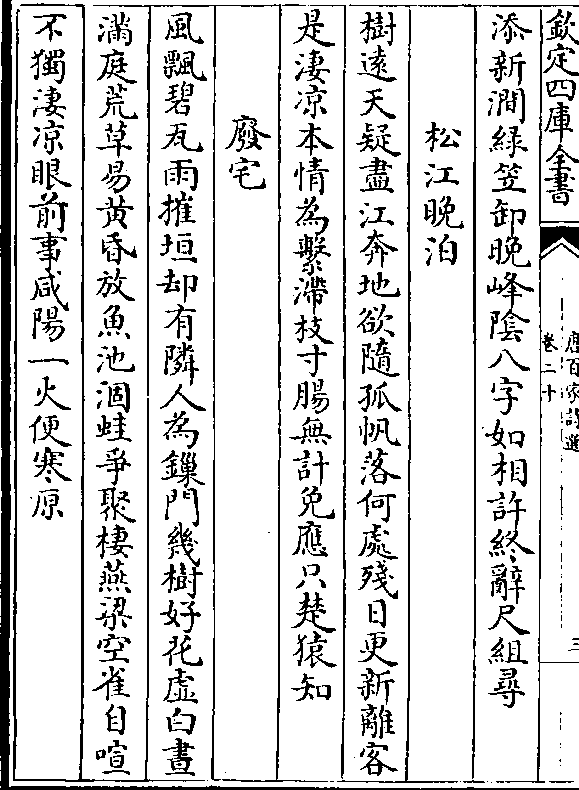 欽定四庫全書
唐百家詩選
卷二十
三
添新澗綠笠卸晚峰陰八字如相許終辭尺組尋
松江晚泊
樹遠天疑盡江奔地欲隨孤帆落何處殘日更新離客
是淒涼本情為繫滯枝寸腸無計免應只楚猿知
廢宅
風飄碧瓦雨摧垣却有隣人為鏁門幾樹好花虛白晝
滿庭荒草易黃昏放魚池涸蛙爭聚棲燕梁空雀自喧
不獨淒涼眼前事咸陽一火便寒原